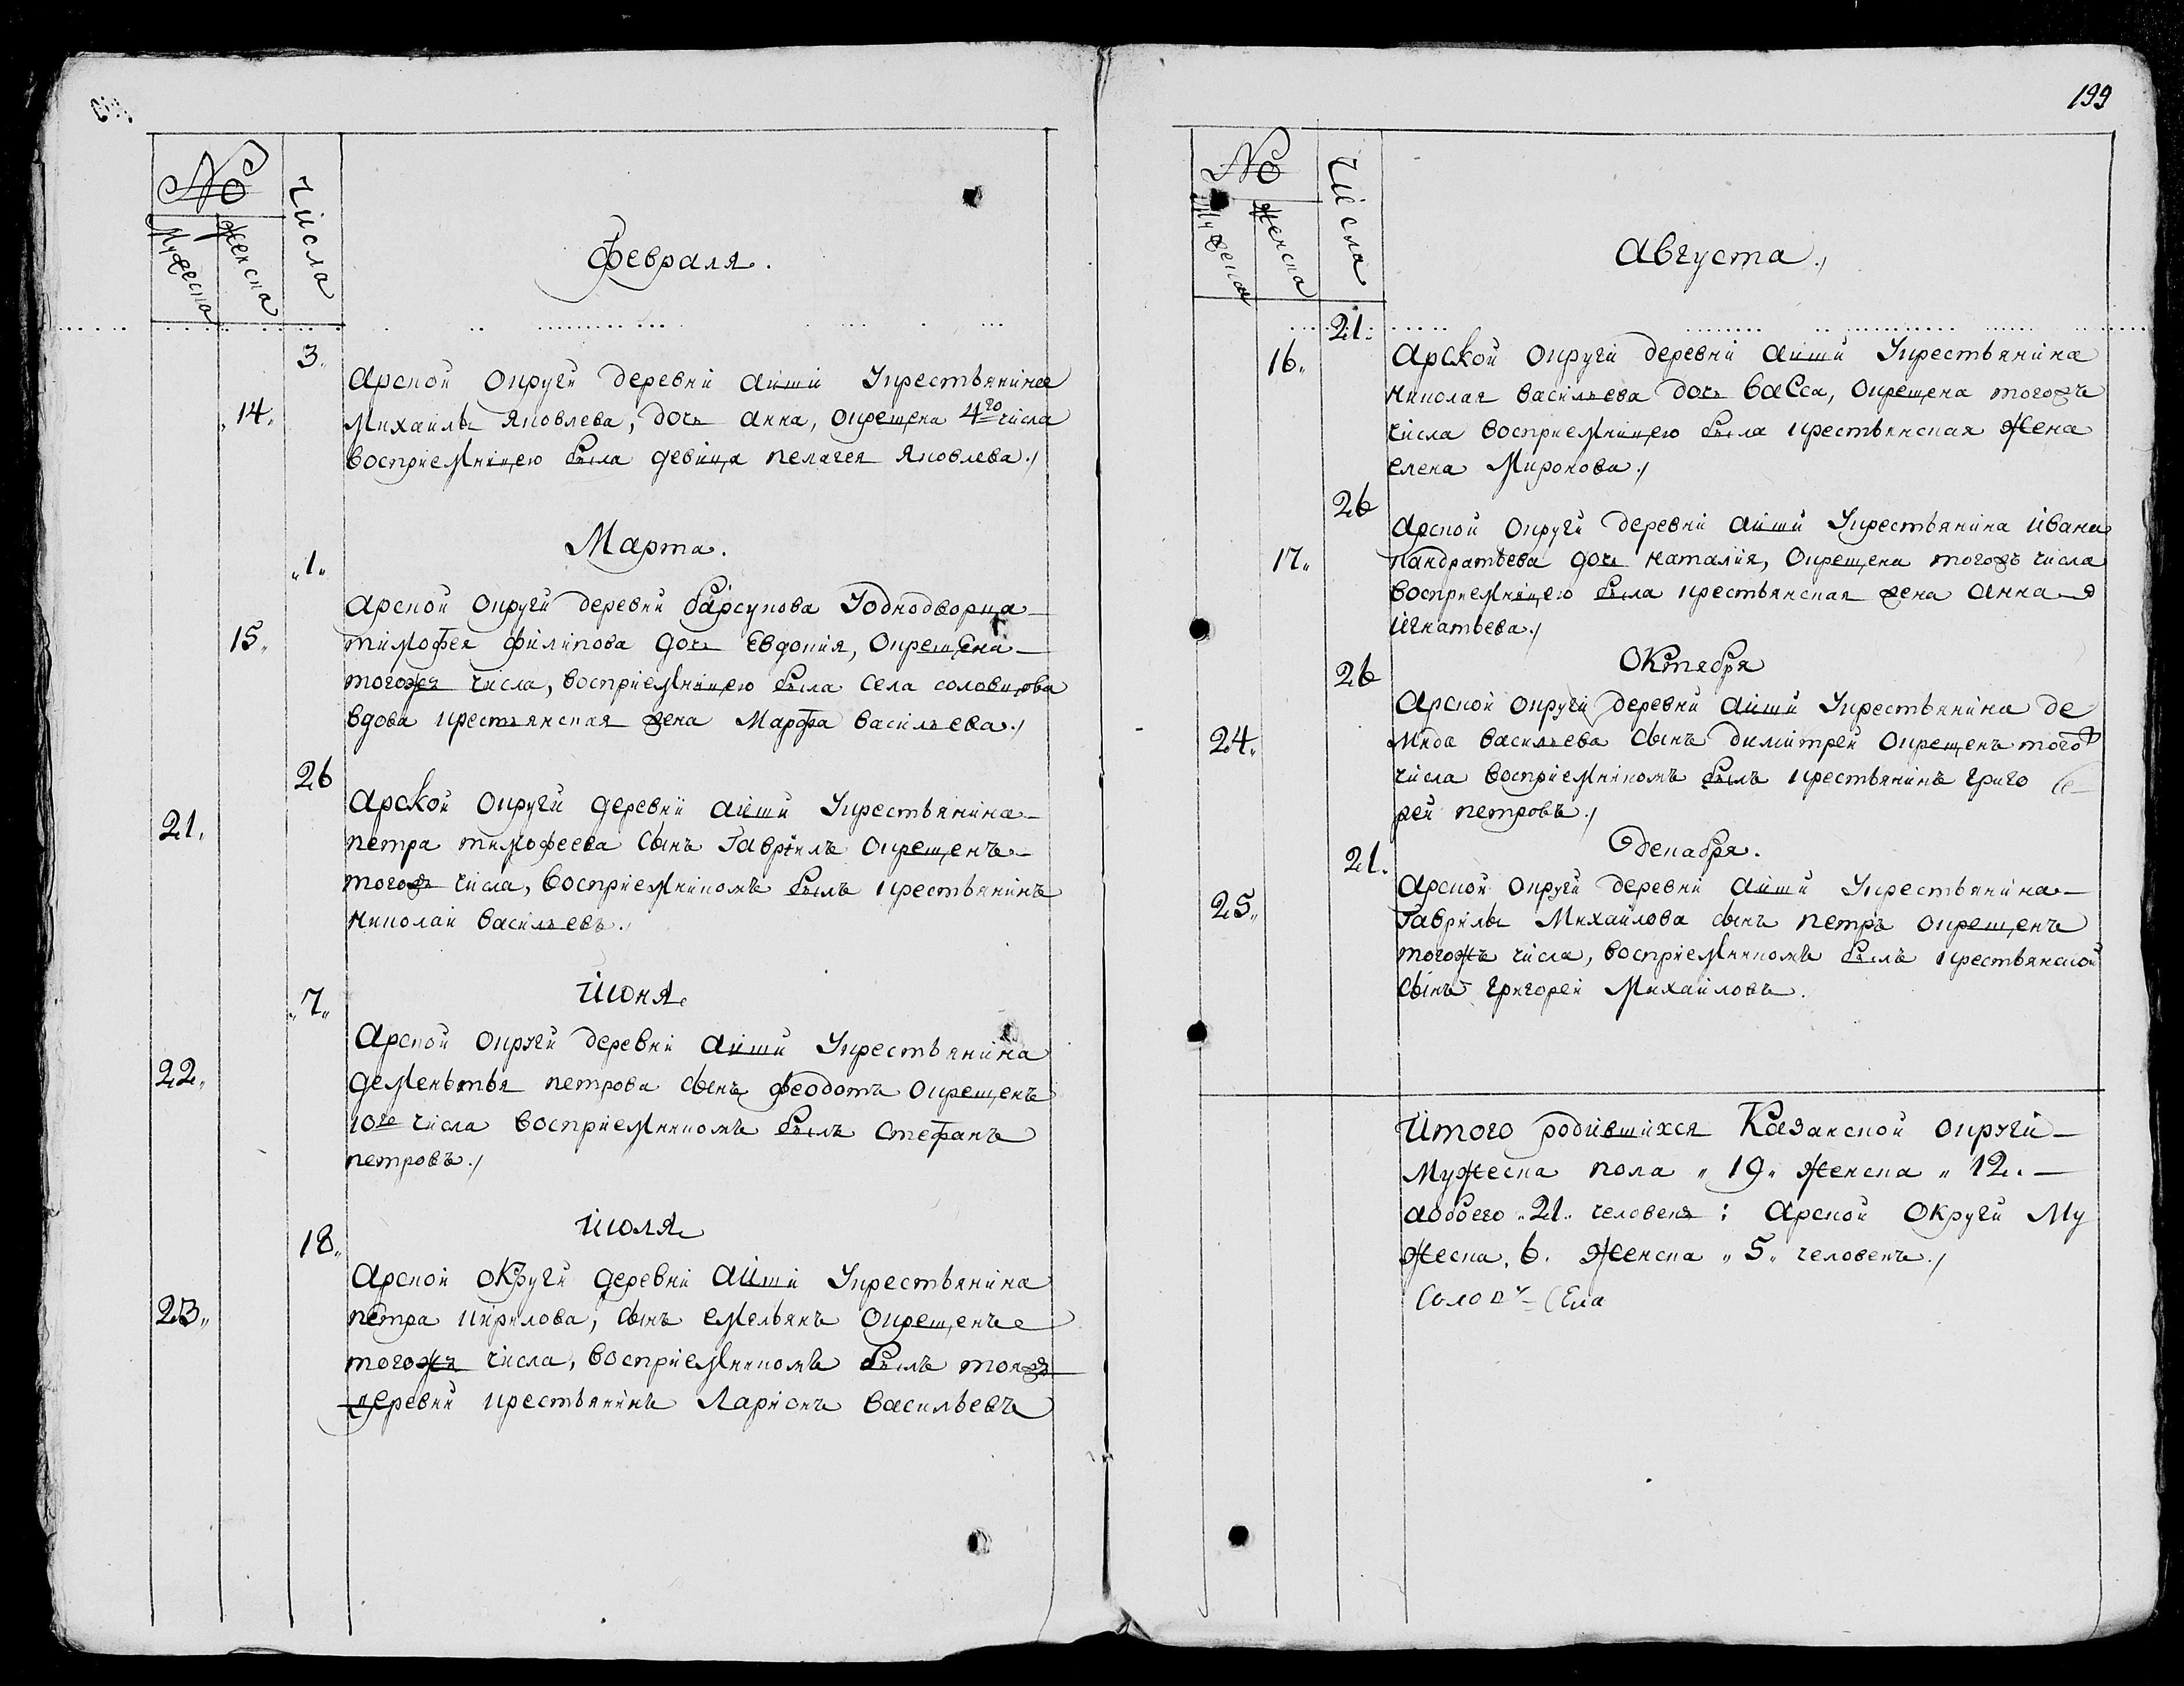 №
Мужеска
Женска
Числа
Февраля.
3.
Арской округи деревни Аиши Укрестьянина
14.
Михаилы Яковлева, дочь Анна, окрещена 4го числа
восприемницею была девица Пелагея Яковлева
Марта.
1.
Арской округи деревни Барсукова Уоднодворца
15.
Тимофея Филипова дочь Евдокия, окрещена
тогожъ числа, восприемницею была села соловцова
вдова крестьянская жена Марфа Васильева
26
Арской округи деревни Аиши Укрестьянина
21.
Петра Тимофеева сынъ Гаврилъ окрещенъ
тогожъ числа, восприемникомъ былъ крестьянинъ
Николай Васильевъ.
Июня
7.
Арской округи деревни Аиши Укрестьянина
22.
Дементья Петрова сынъ Феодотъ окрещенъ
10го числа восприемникомъ былъ Стефанъ
Петровъ
Июля
18.
Арской округи деревни Аиши Укрестьянина
23.
Петра Кирилова, сынъ Емельянъ окрещенъ
тогожъ числа, восприемникомъ былъ тояжъ
деревни крестьянинъ Ларионъ Васильевъ
199
№
Мужеска
Женска
Числа
Августа
21.
16.
Арской округи деревни Аиши Укрестьянина
Николая Васильева дочь Васса, окрещена тогожъ
числа восприемницею была крестьянская жена
Елена Миронова
26
Арской округи деревни Аиши Укрестьянина Ивана
17.
Кандратьева дочь Наталия, окрещена тогожъ числа
восприемницею была крестьянская жена Анна
Игнатьева
Октября
26
Арской округи деревни Аиши Укрестьянина Де
24.
мида Васильева сынъ Димитрей окрещенъ тогож
числа восприемникомъ былъ крестьянинъ Григо
рей Петровъ
Декабря.
21.
Арской округи деревни Аиши Укрестьянина
25.
Гаврилы Михайлова сынъ Петръ окрещенъ
тогожъ числа, восприемникомъ былъ крестьянской
сынъ Григорей Михайловъ.
Итого родившихся Казанской округи
Мужеска пола 19. Женска 12.
аобоего 21. человекъ: Арской округи Му
жеска. 6. Женска 5. человекъ